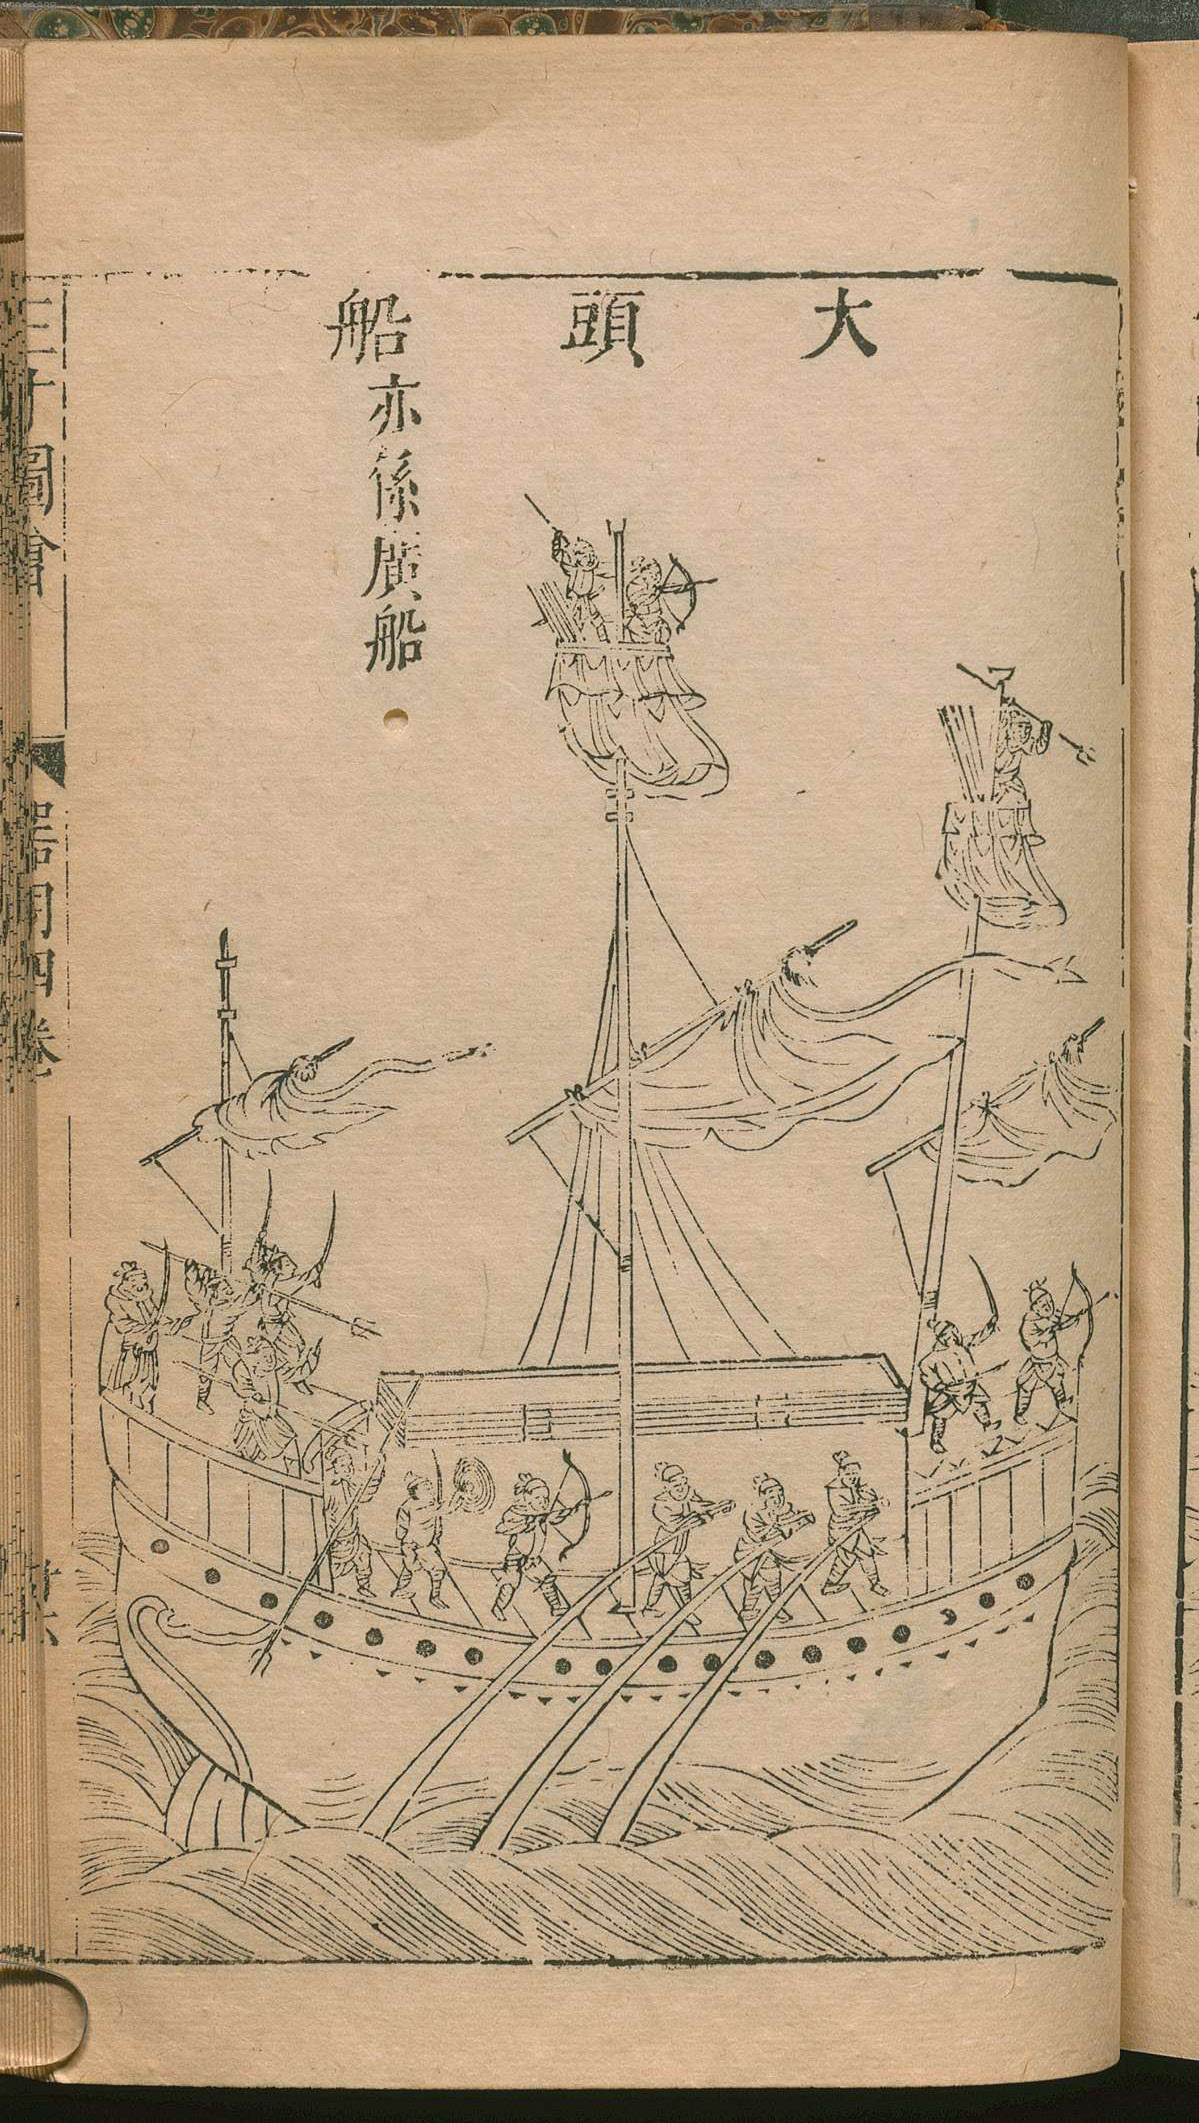 大頭船
亦係廣船
三才圖會
器用四卷